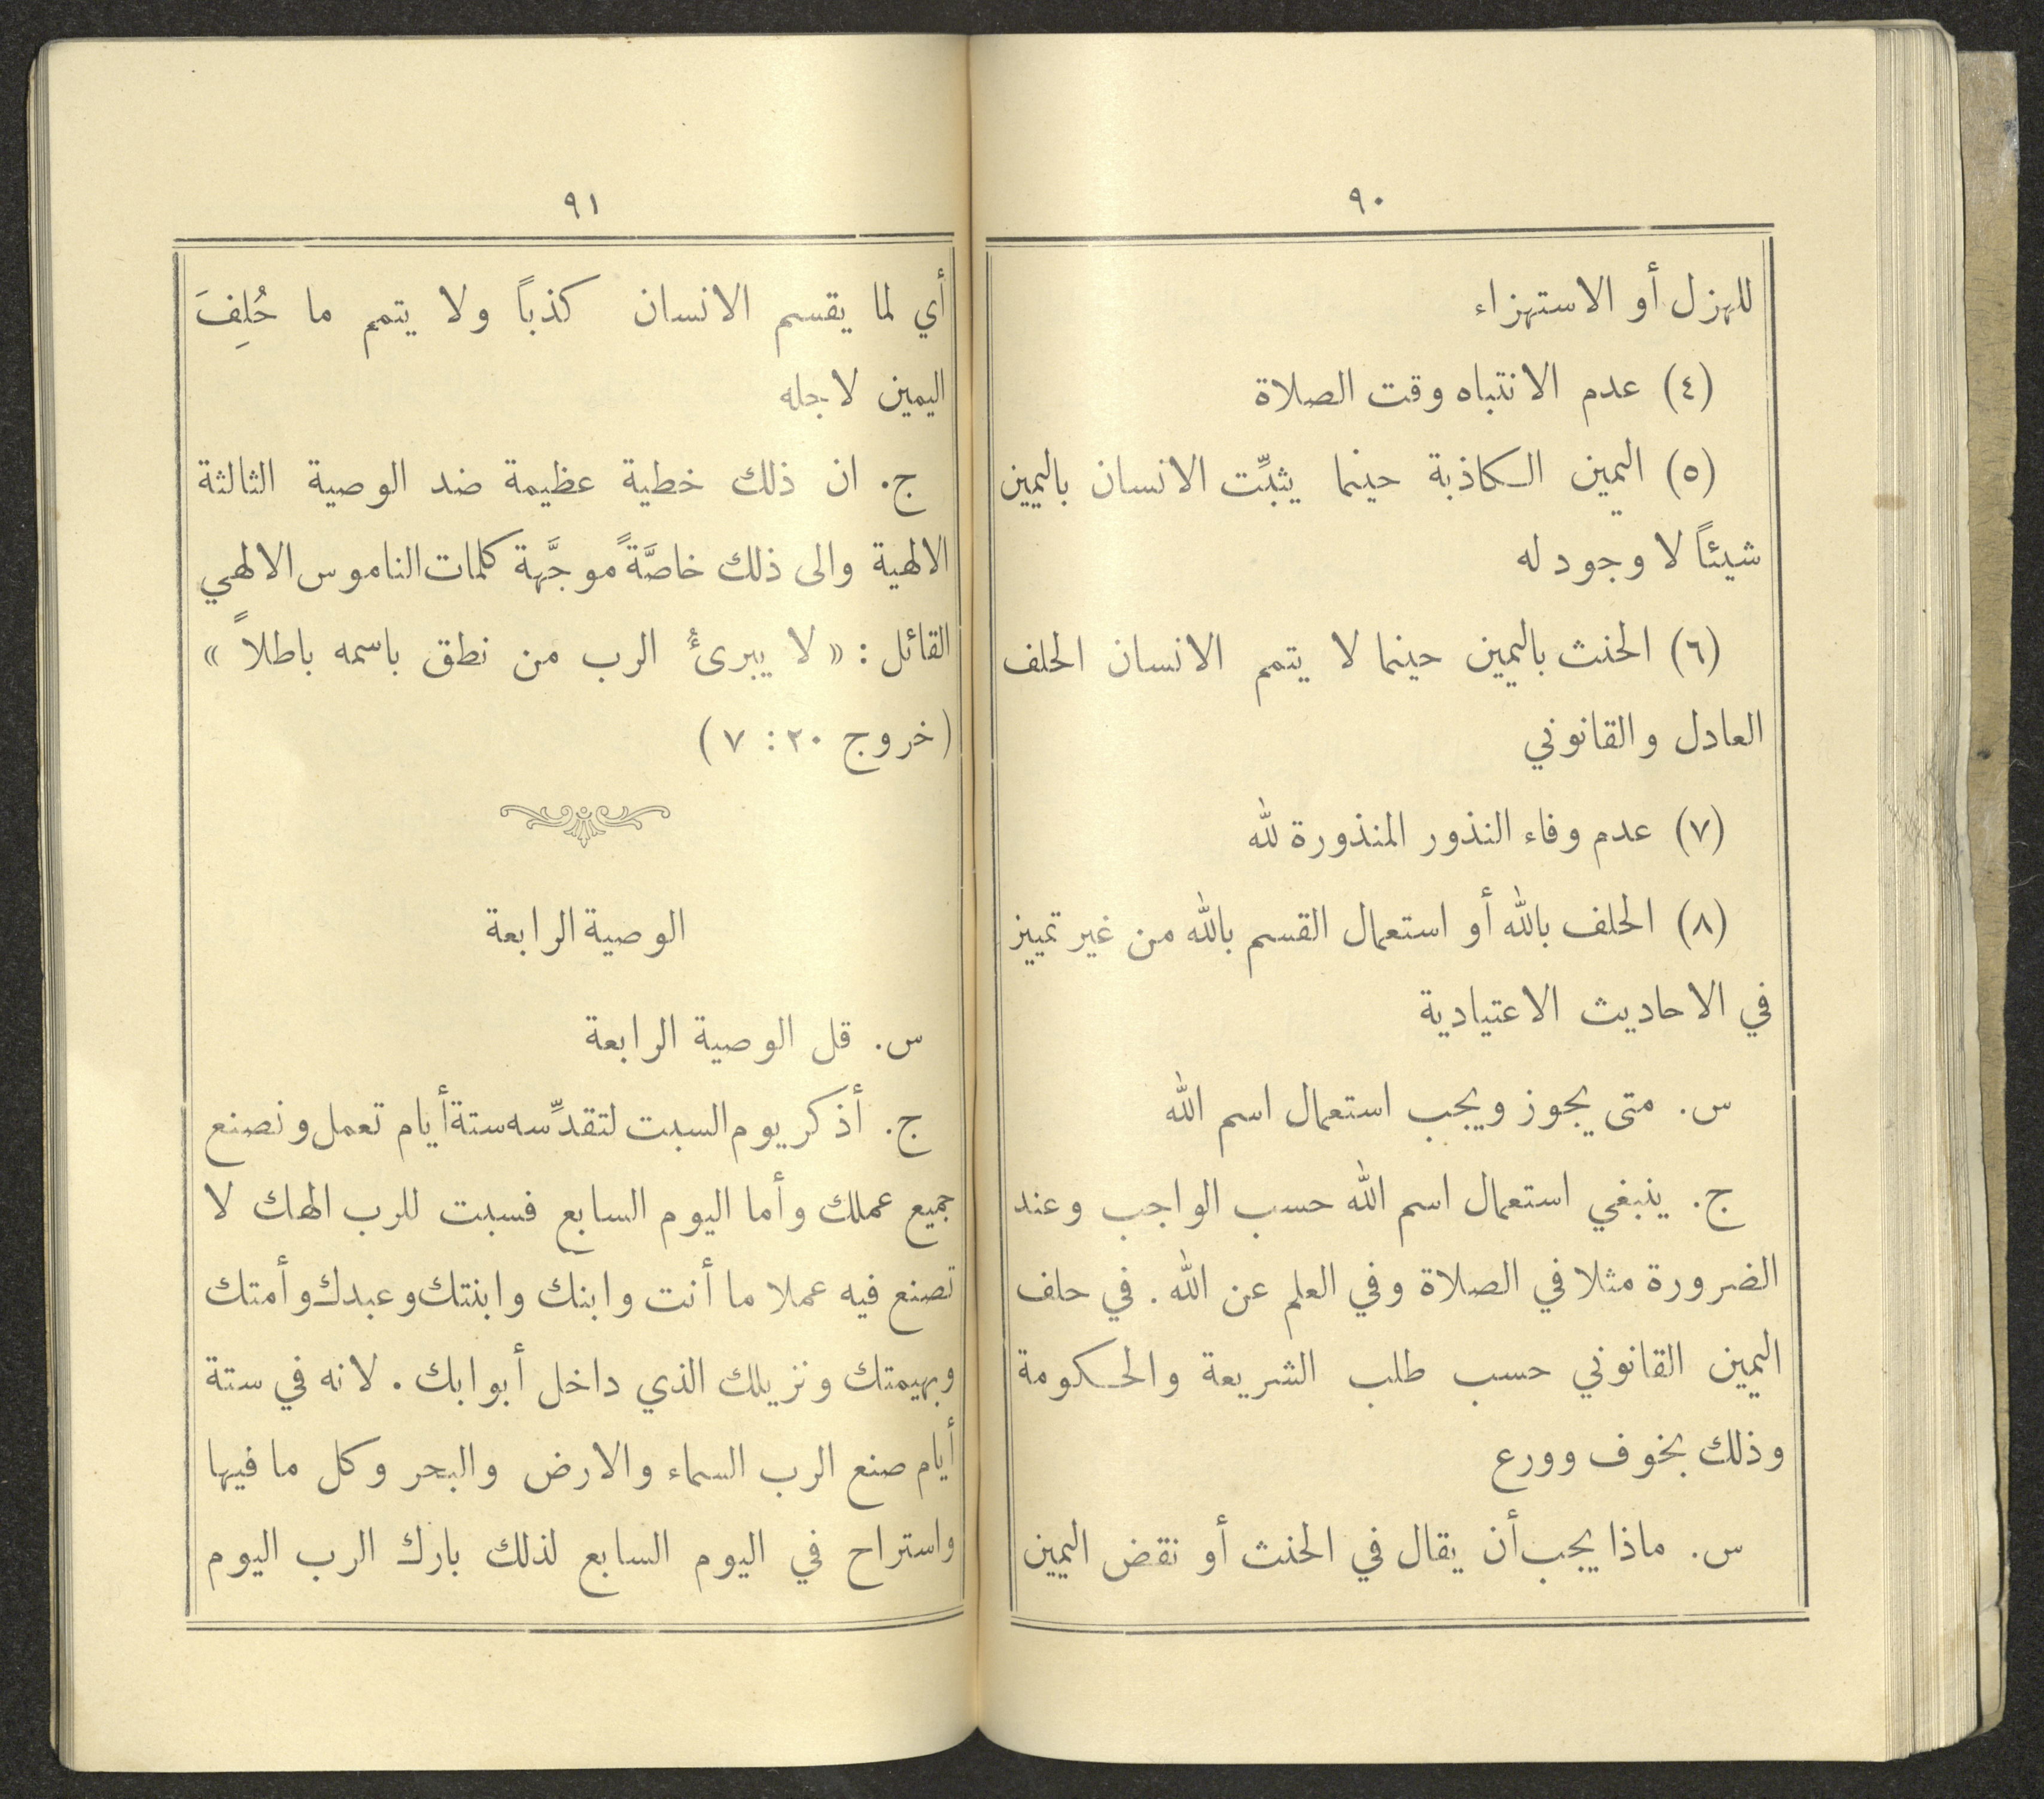 ٩٠
للهزل أو الاستهزاء
(٤) عدم الانتباه وقت الصلاة
(٥) اليمين الكاذبة حينما يثبِّت الانسان باليمين
شيئاً لا وجود له
(٦) الحنث باليمين حينما لا يتمم الانسان الحلف
العادل والقانوني
(٧) عدم وفاء النذور المنذورة لله
(٨) الحلف بالله أو استعمال القسم بالله من غير تمييز
في الاحاديث الاعتيادية
س. متى يجوز ويجب استعمال اسم الله
ج. ينبغي استعمال اسم الله حسب الواجب وعند
الضرورة مثلا في الصلاة وفي العلم عن الله. في حلف
اليمين القانوني حسب طلب الشريعة والحكومة
وذلك بخوف وورع
س. ماذا يجب أن يقال في الحنث أو نقض اليمين
٩١
أي لما يقسم الانسان كذباً ولا يتمم ما حُلِفَ
اليمين لاجله
ج. ان ذلك خطية عظيمة ضد الوصية الثالثة
الالهية والى ذلك خاصَّةً موجَّهة كلمات الناموس الالهي
القائل: «لا يبرىُٔ الرب من نطق باسمه باطلاً»
(خروج ٢٠: ٧)
الوصية الرابعة
س. قل الوصية الرابعة
ج. أذكر يوم السبت لتقدِّسه ستة أيام تعمل ونصنع
جميع عملك وأما اليوم السابع فسبت للرب الهك لا
تصنع فيه عملا ما أنت وابنك وابنتك وعبدك وأمتك
وبهيمتك ونزيلك الذي داخل أبوابك. لانه في ستة
أيام صنع الرب السماء والارض والبحر وكل ما فيها
واستراح في اليوم السابع لذلك بارك الرب اليوم